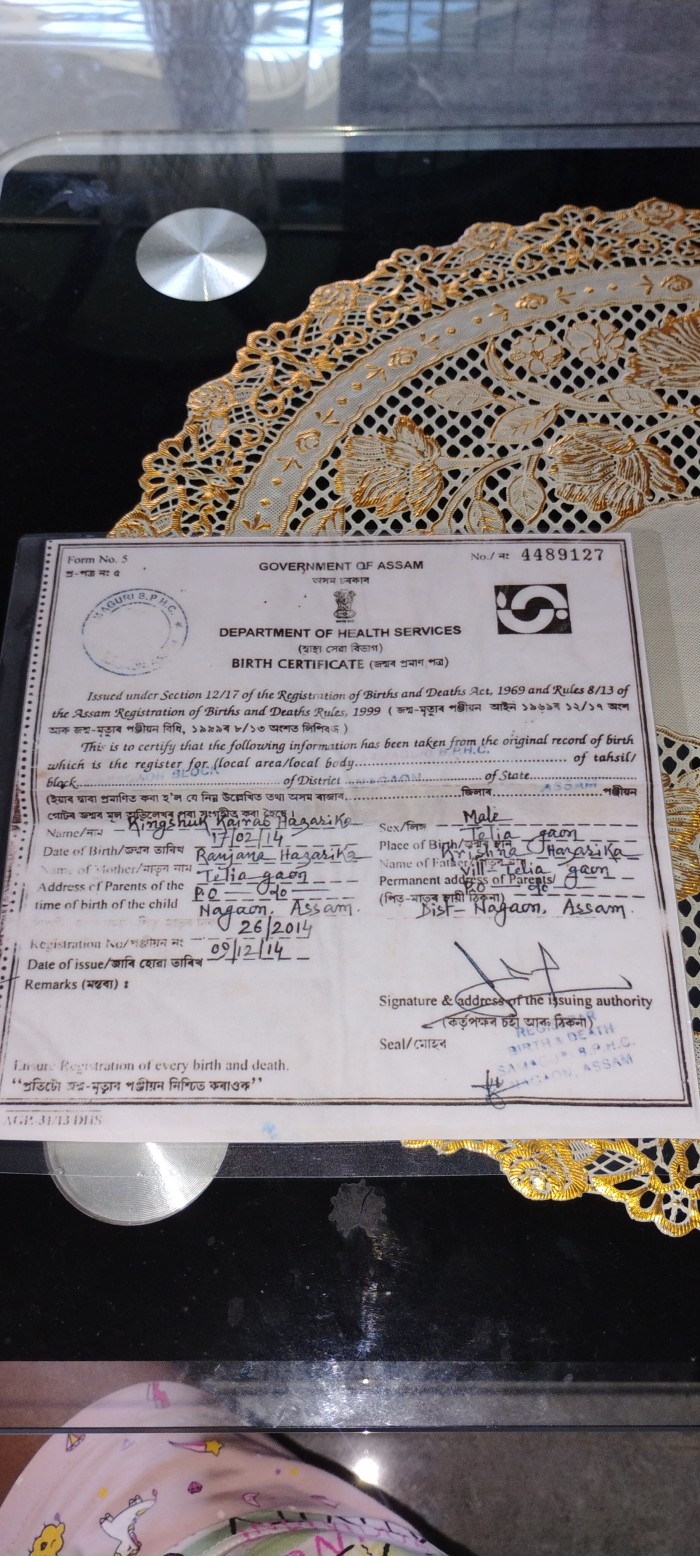 Form No. 5
প্র-পত্ৰ নং ৫
No./ নং 4489127
GOVERNMENT OF ASSAM
অসম চৰকাৰ
MAGURI B.P.H.C.
DEPARTMENT OF HEALTH SERVICES
(স্বাস্থ্য সেৱা বিভাগ)
BIRTH CERTIFICATE (জন্মৰ প্ৰমাণ পত্ৰ)
Issued under Section 12/17 of the Registration of Births and Deaths Act, 1969 and Rules 8/13 of
the Assam Registration of Births and Deaths Rules, 1999 ( জন্ম-মৃত্যুৰ পঞ্জীয়ন আইন ১৯৬৯ৰ ১২/১৭ অংশ
আৰু জন্ম-মৃত্যুৰ পঞ্জীয়ন বিধি, ১৯৯৯ৰ ৮/১৩ অংশত লিপিবদ্ধ )
This is to certify that the following information has been taken from the original record of birth
which is the register for (local area/local body B.P.H.C. of tahsil/
block BLOCK of District NAGAON of State ASSAM
(ইয়াৰ দ্বাৰা প্ৰমাণিত কৰা হ'ল যে নিম্ন উল্লেখিত তথ্য অসম ৰাজ্যৰ জিলাৰ পঞ্জীয়ন
Name/নাম Kingshuk Hazarika Sex/লিঙ্গ Male
Date of Birth/জন্মৰ তাৰিখ 17/02/14 Place of Birth Telia gaon
Name of Mother/মাতৃৰ নাম Ranjana Hazarika Name of Father Krishna Hazarika
Address of Parents of the Telia gaon Permanent address of Parents/ Vill- Telia gaon
time of birth of the child P.O do (পিতৃ-মাতৃৰ স্থায়ী ঠিকনা) P.O do
Nagaon, Assam. Dist- Nagaon, Assam.
Registration No/পঞ্জীয়ন নং 26/2014
Date of issue/জাৰি হোৱা তাৰিখ 09/12/14
Remarks (মন্তব্য) :
Signature & address of the issuing authority
(কৰ্তৃপক্ষৰ চহী আৰু ঠিকনা)
Seal/মোহৰ
REGISTRAR
BIRTH & DEATH
B.P.H.C.
NAGAON, ASSAM
Ensure Registration of every birth and death.
“প্ৰতিটো জন্ম-মৃত্যুৰ পঞ্জীয়ন নিশ্চিত কৰাওক”
AGP. 31/13 DHS